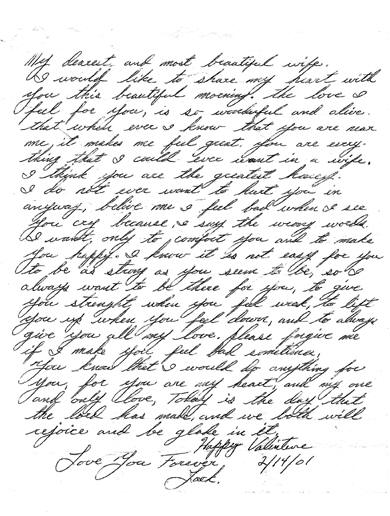 My dearest and most beautiful wife.
I would like to share my heart with
you this beautiful morning. the love I
feel for you, is so wonderful and alive.
that when ever I know that you are near
me, it makes me feel great. you are every-
thing that I could ever want in a wife.
I think you are the greatest honey.
I do not ever want to hurt you in
anyway, belive me I feel bad when I see
you cry because, I say the wrong words.
I want, only to, comfort you and to make
you happy. I know it is not easy for you
to be as strong as you seem to be, so I
always want to be there for you, to give
you strenght, when you feel weak, to lift
you up when you feel down, and to always
give you all my love. please forgive me
if I make you feel bad sometimes,
You know that I would do anything for
you, for you are my heart, and my one
and only love, Today is the day that
the lord has made, and we both will
rejoice and be glade in it,
Happy Valentine
Love You Forever, 2/14/01
Jack.